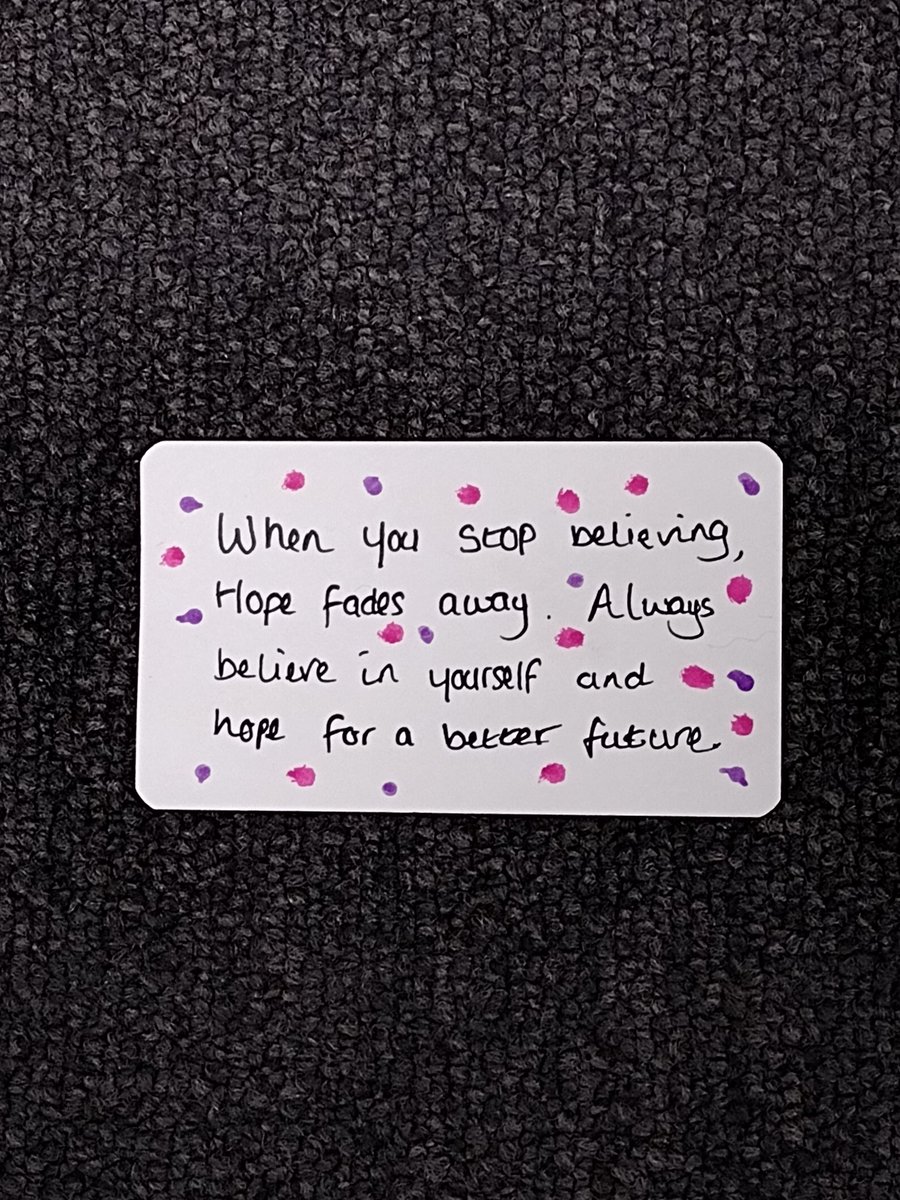 When you stop believing,
Hope fades away. Always
believe in yourself and
hope for a better future.